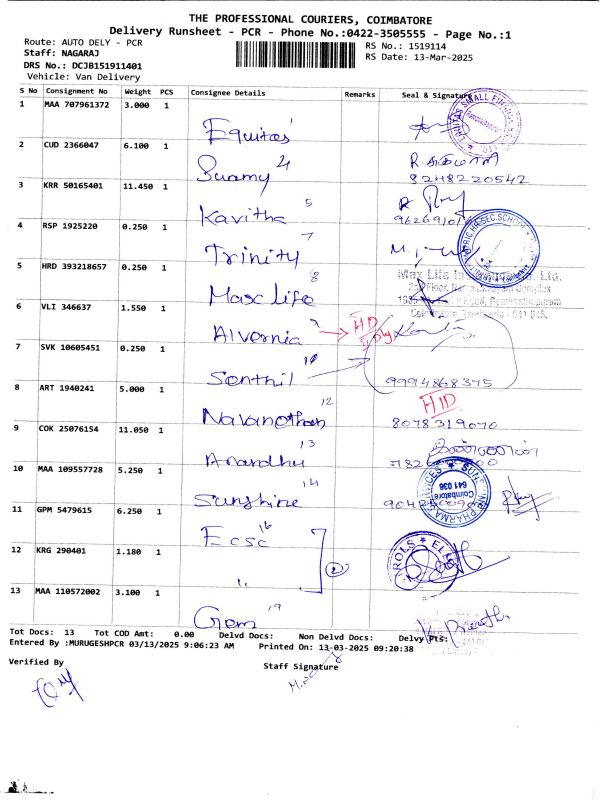 THE PROFESSIONAL COURIERS, COIMBATORE
Delivery Runsheet - PCR - Phone No.:0422-3505555 - Page No.:1
Route: AUTO DELY - PCR
RS No.: 1519114
Staff: NAGARAJ
RS Date: 13-Mar-2025
DRS No.: DCJB151911401
Vehicle: Van Delivery
S No Consignment No Weight PCS Consignee Details Remarks Seal & Signature
1 MAA 707961372 3.000 1 Equitas
2 CUD 2366047 6.100 1 Swamy 4
8248220542
3 KRR 50165401 11.450 1 Kavitha 5
4 RSP 1925220 0.250 1 Trinity 7
5 HRD 393218657 0.250 1 Max life 8
6 VLI 346637 1.550 1 Alvernia HD
7 SVK 10605451 0.250 1 Senthil 9994868375
8 ART 1940241 5.000 1 12 HD
8078319070
9 COK 25076154 11.050 1 13
10 MAA 109557728 5.250 1 Sunshine 14
Coimbatore 641 036
11 GPM 5479615 6.250 1 Ecsc 16
12 KRG 290401 1.180 1 " 2
13 MAA 110572002 3.100 1 Gem 19
Tot Docs: 13 Tot COD Amt: 0.00 Delvd Docs: Non Delvd Docs: Delvy Pts:
Entered By :MURUGESHPCR 03/13/2025 9:06:23 AM Printed On: 13-03-2025 09:20:38
Verified By
Staff Signature